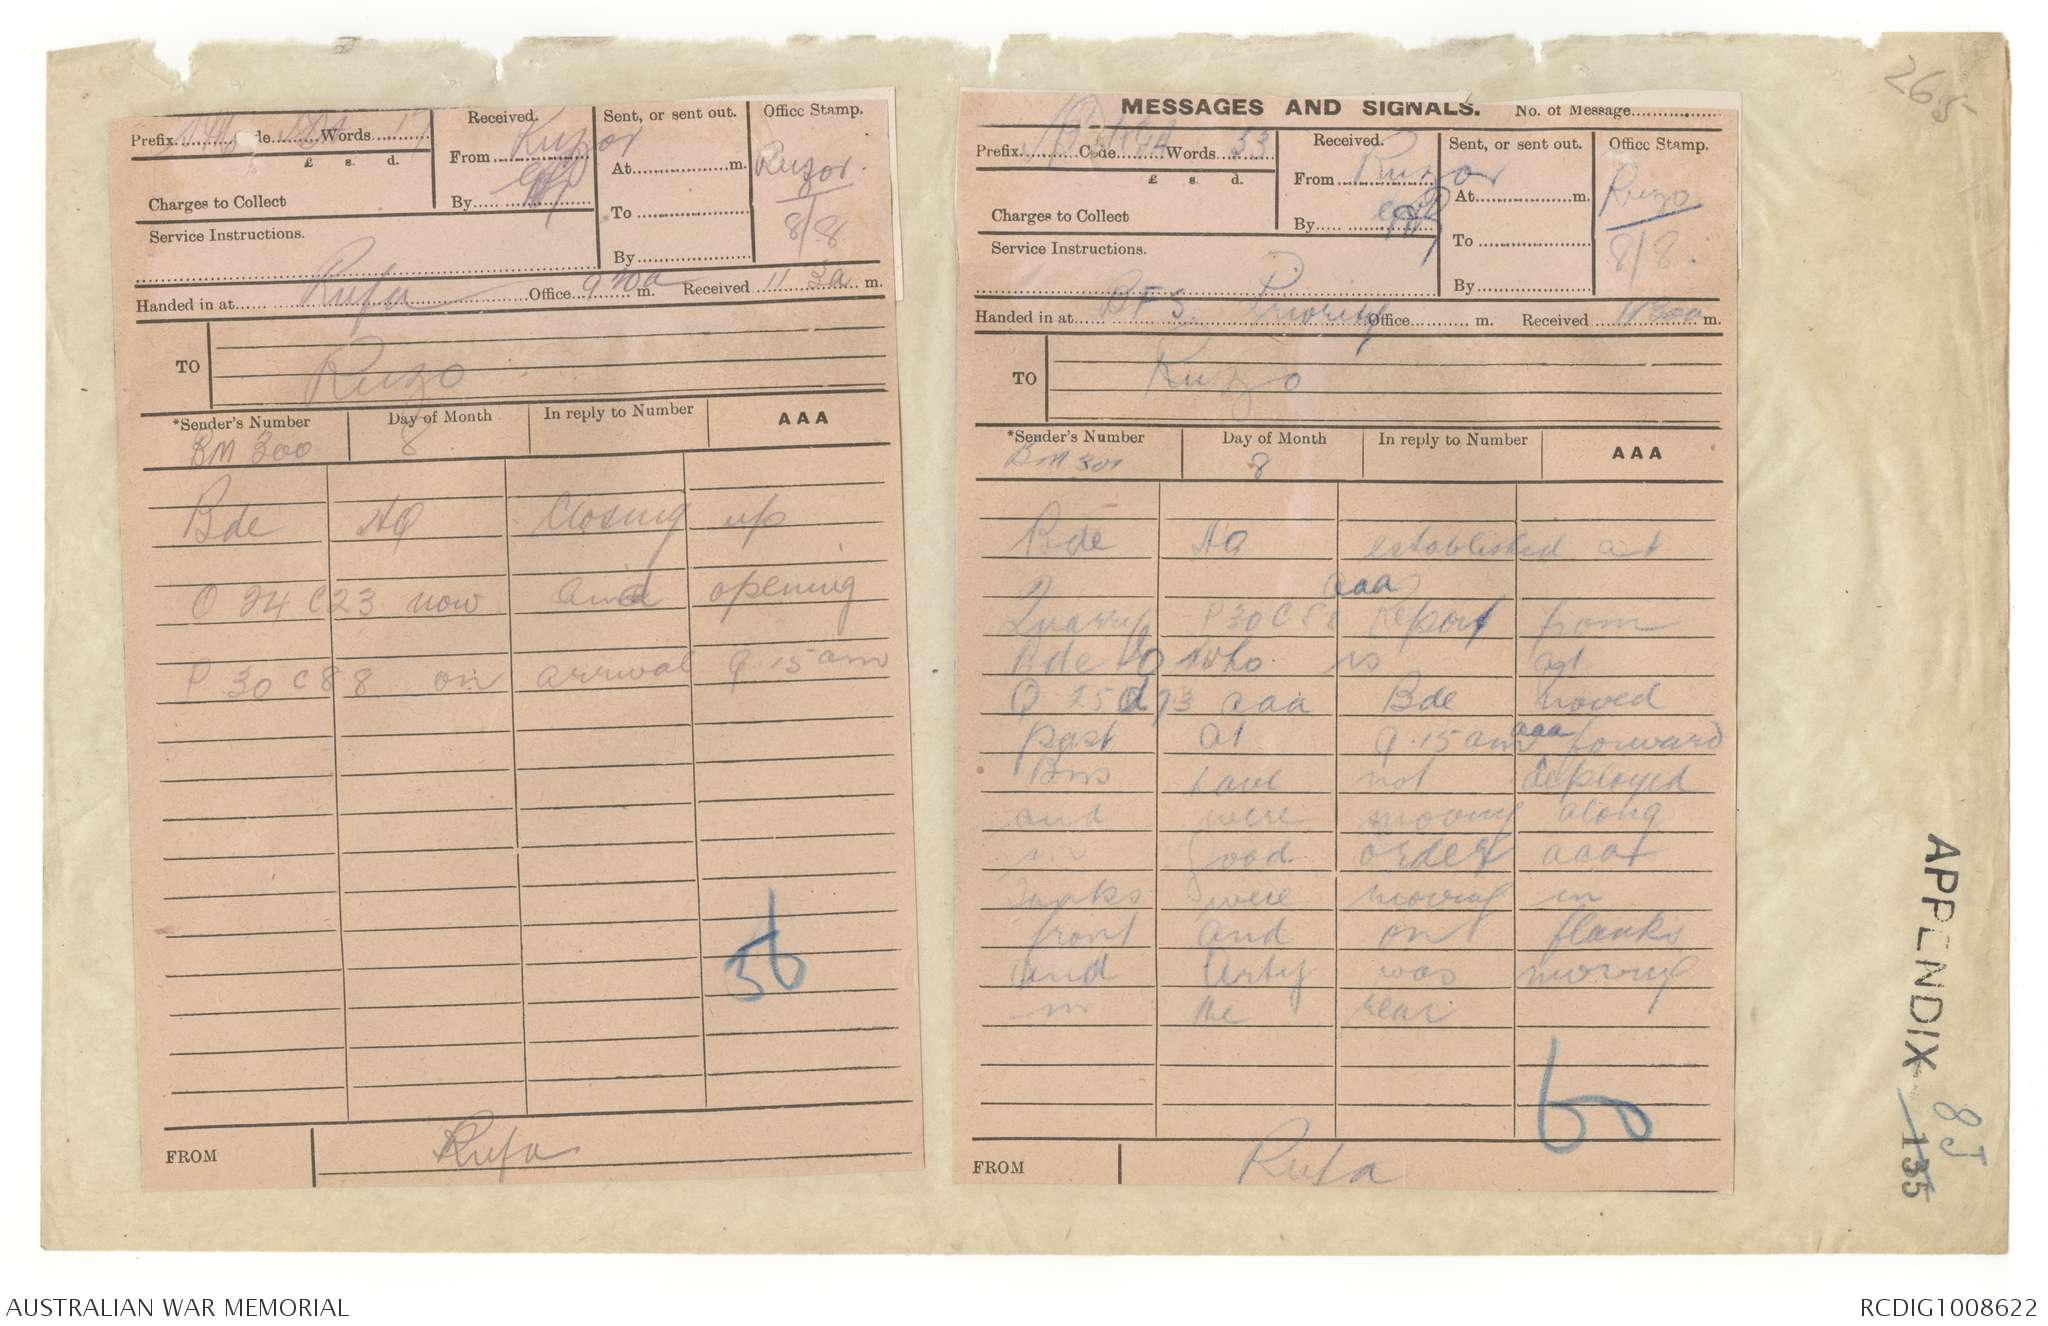 265
Prefix Code Words 17
£ s. d.
Charges to Collect
Service Instructions.
Received.
From Ruzor
By
Sent, or sent out.
At m.
To
By
Office Stamp.
Ruzor.
8/8
Handed in at Rufa Office m. Received 11 3a m.
TO Ruzo
*Sender's Number Day of Month In reply to Number AAA
BM 300 8
Bde HQ closing up
O 24 C23 now and opening
P 30 C88 on arrival 9.15am
56
FROM Rufa
MESSAGES AND SIGNALS. No. of Message
Prefix Code Words 33
£ s. d.
Charges to Collect
Service Instructions.
Received.
From Ruzor
By
Sent, or sent out.
At m.
To
By
Office Stamp.
Ruzo
8/8.
Priority
Handed in at BFS. Office m. Received m.
TO Ruzo
*Sender's Number Day of Month In reply to Number AAA
BM 301 8
Bde HQ established at
aaa
Quarry P30C88 report from
Bde who is at
aaa Bde moved
past at 9.15am aaa forward
Bns have not deployed
and were moving along
in good order aaa
Tanks were moving in
front and on flanks
and Arty was moving
in the rear
60
FROM Rufa
APPENDIX 135
8J
AUSTRALIAN WAR MEMORIAL
RCDIG1008622